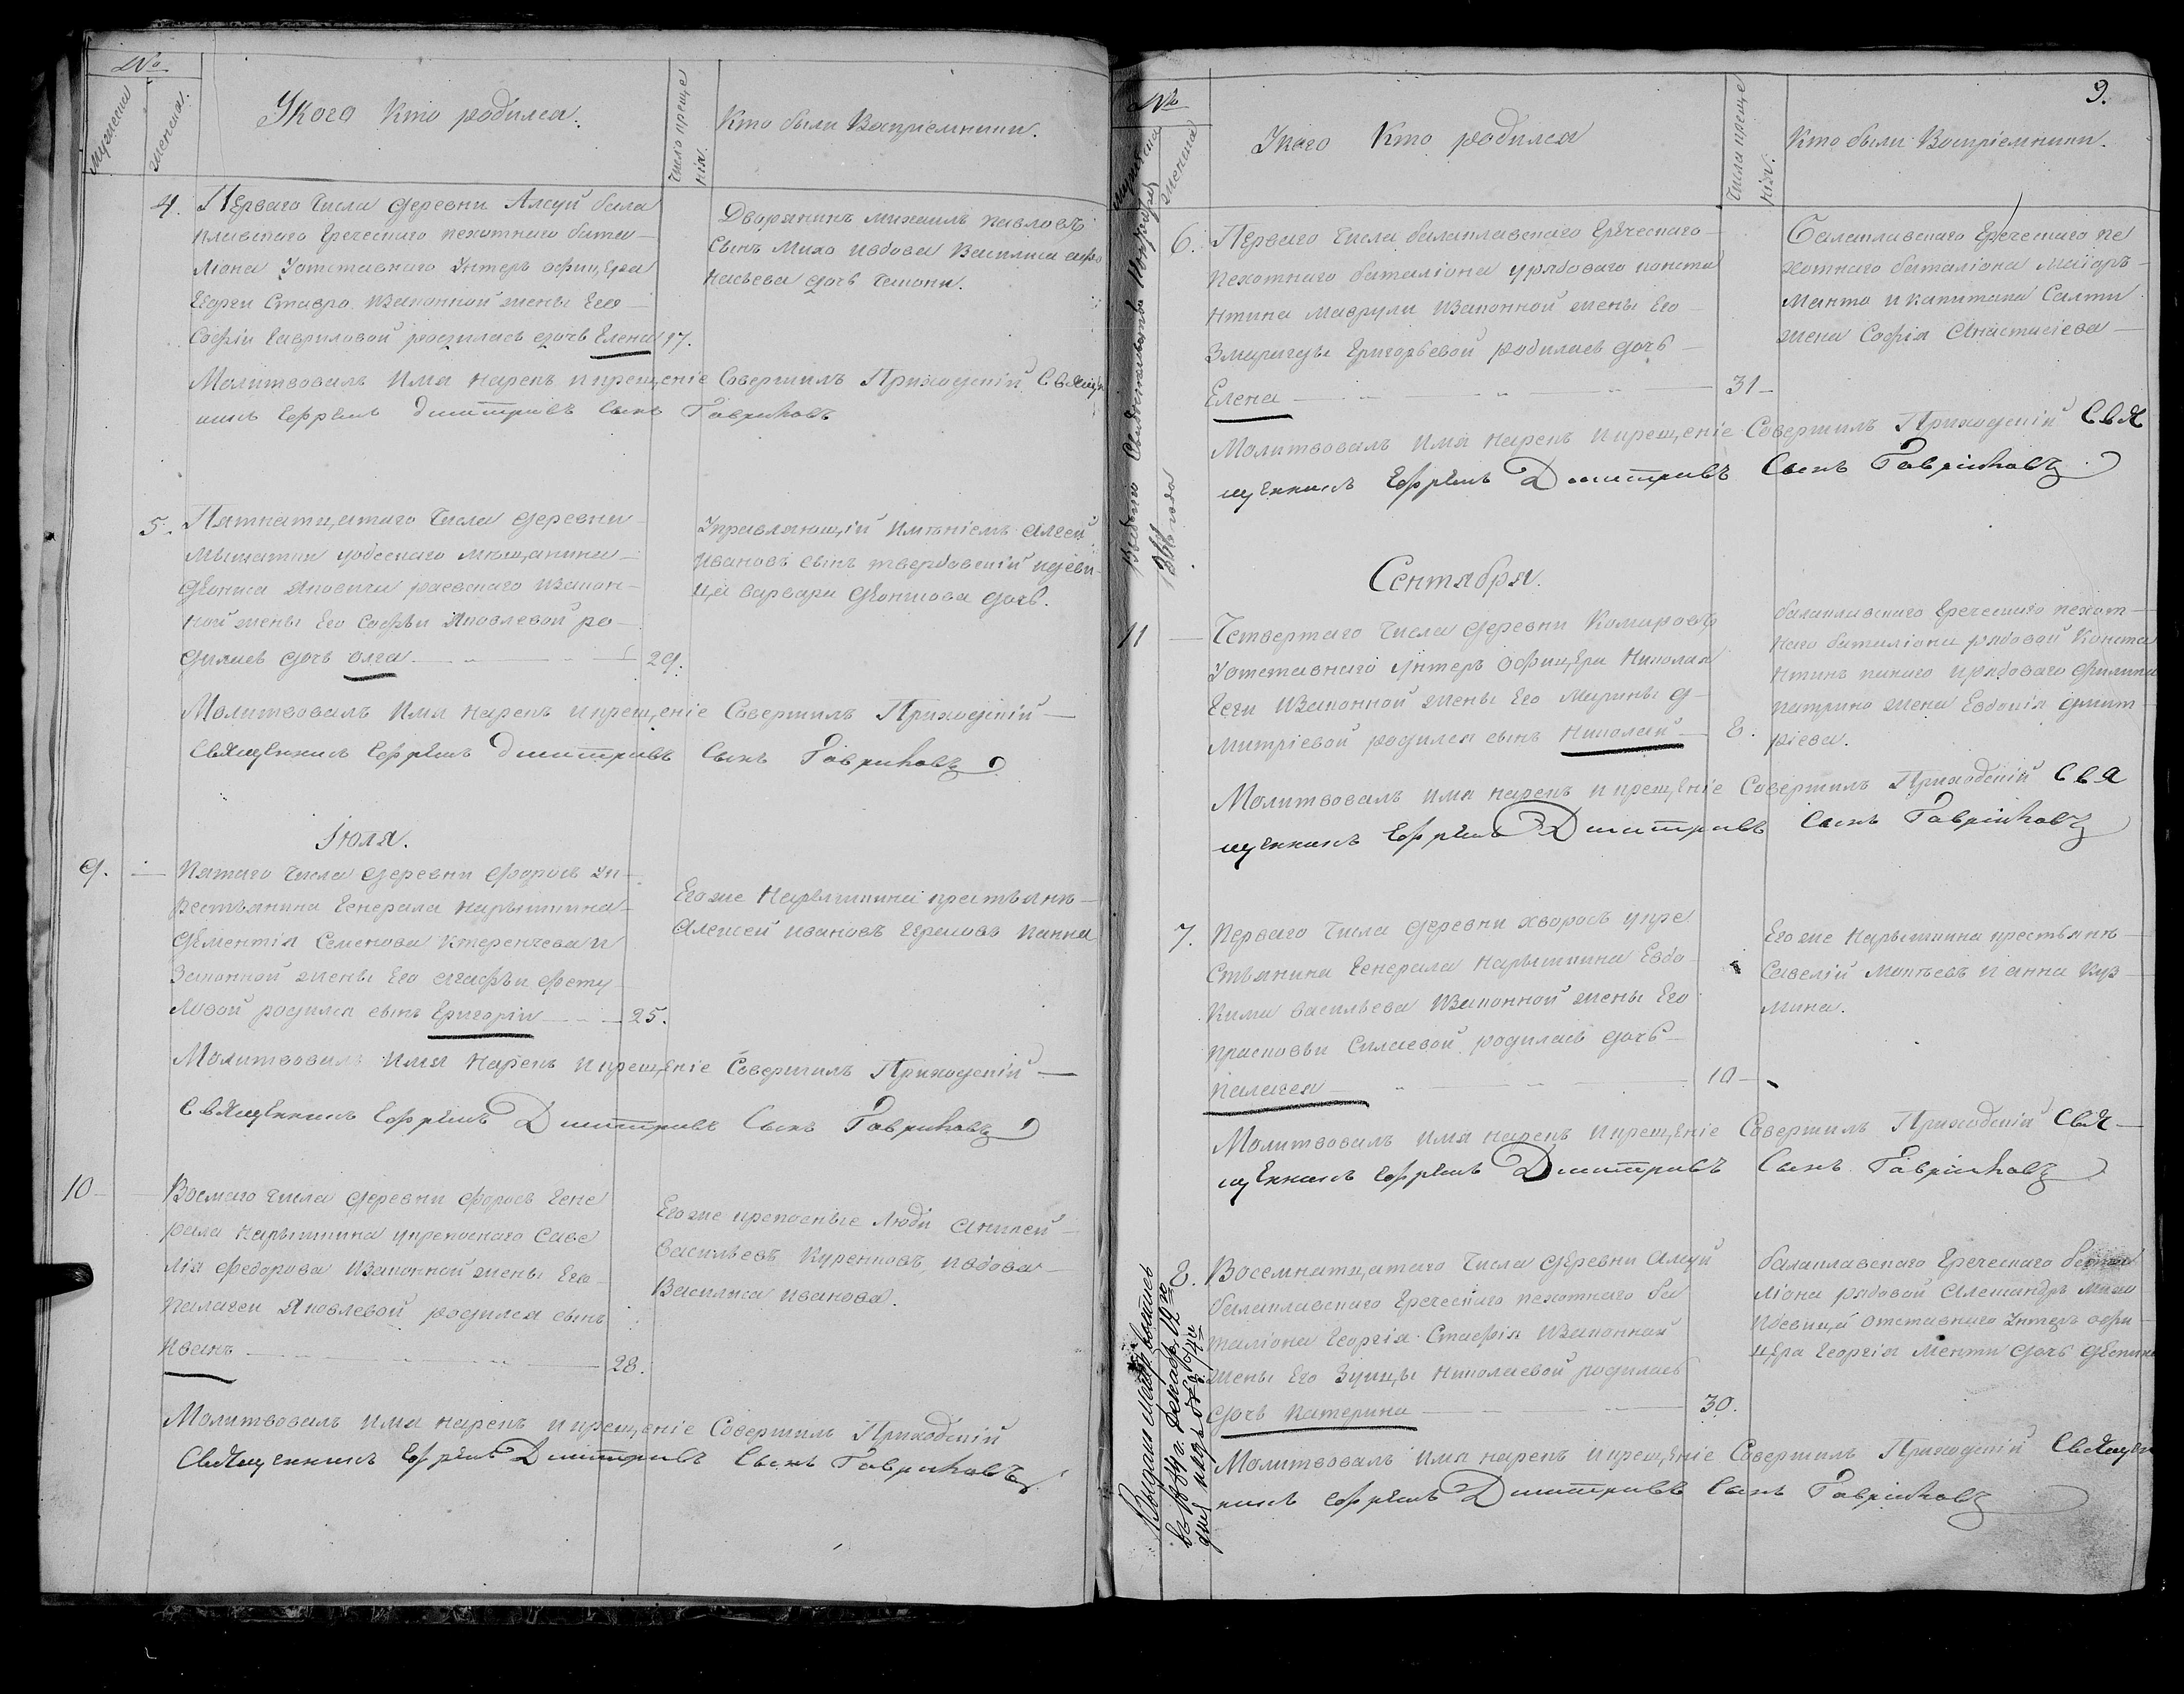 №
мужеска
женска.
У кого кто родился.
Число крещенія.
Кто были Восприемники.
4. Перваго числа деревни Алсуй бала
клавскаго греческаго пехотнаго бата
лiона Уотставнаго Унтеръ офицера
Георги Ставро Изаконной жены Его
Софiи Гавриловой родилась дочь Елена 17.
Дворянинъ михаилъ павловъ
сынъ Михо ивдова Василиса афо
насьева дочь
Молитвовалъ имя нарекъ и крещенiе Совершилъ Приходскiй Свяще
никъ Ефремъ дмитриевъ сынъ Гавриковъ
5. Пятнатцатаго числа деревни
мшатки уодескаго мещанина
Изакон
ной жены Его Софьи Яковлевой ро
дилась дочь олга 29.
Управляющiй имѣнiемъ
ивановъ сынъ идеви
ца варвара дочь.
Молитвовалъ имя нарекъ и крещенiе Совершилъ Приходскiй
Священникъ Ефремъ дмитриевъ сынъ Гавриковъ
Iюля.
9. Пятаго числа деревни форосъ ук
рестьянина Генерала нарышкина
дементiя Семенова
Законной жены Его агафьи
родился сынъ Григорiй 25.
Егоже Нарышкина крестьянъ
Алексей ивановъ
Молитвовалъ имя нарекъ и крещенiе Совершилъ Приходскiй
Священникъ Ефремъ Дмитриевъ Сынъ Гавриковъ
10 Восмаго числа деревни форосъ гене
рала нарышкина укрепоснаго Саве
лiя федорова Изаконной жены Его
палагеи Яковлевой родился сынъ
Иванъ 28.
Егоже крепосные люди
Васильевъ Куренковъ, ивдова
Василиса иванова.
Молитвовалъ имя нарекъ и крещенiе Совершилъ Приходскiй
Священникъ Ефремъ Дмитриевъ Сынъ Гавриковъ
9.
№
мужеска
женска
У кого кто родился
Числа крещенія.
Кто были Восприемники.
6. Перваго числа балаклавскаго Греческаго
пехотнаго баталiона урядоваго конста
нтина маврули Изаконной жены Его
Змарагды Григорьевой родилась дочь
Елена 31
Балаклавскаго Греческаго пе
хотнаго баталiона Маiоръ
Манто и капитана Салти
жена Софiя Анастасiева
Молитвовалъ имя нарекъ и крещенiе Совершилъ Приходскiй Свя
щенникъ Ефремъ Дмитриевъ Сынъ Гавриковъ
Сентября.
11 Четвертаго числа деревни Комаровъ
Уотставнаго Унтеръ Офицера Николая
Изаконной жены Его Марины д
митрiевой родился сынъ Николай 8.
балаклавскаго Греческаго пехот
наго баталiона рядовой Конста
нтинъ и рядоваго филипа
патрино жена Евдокiя дмит
рiева.
Молитвовалъ имя нарекъ и крещенiе Совершилъ Приходскiй Свя
щенникъ Ефремъ Дмитриевъ Сынъ Гавриковъ
7. Перваго числа деревни хворосъ укре
стьянина Генерала Нарышкина Евдо
кима васильева Изаконной жены Его
прасковьи Силаевой родилась дочь
Палагея 10
Егоже Нарышкина крестьянъ
Савелiй и анна Куз
мина.
Молитвовалъ имя нарекъ и крещенiе Совершилъ Приходскiй Свя
щенникъ Ефремъ Дмитриевъ Сынъ Гавриковъ
8. Восемнатцатаго числа деревни Алсуй
балаклавскаго Греческаго пехотнаго ба
талiона Георгiя Изаконной
жены Его Николаевой родилась
дочь катерина 30.
балаклавскаго Греческаго бата
лiона рядовой Александръ
идевица отставнаго Унтеръ офи
цера Георгiя дочь
Молитвовалъ имя нарекъ и крещенiе Совершилъ Приходскiй Священ
никъ Ефремъ Дмитриевъ Сынъ Гавриковъ